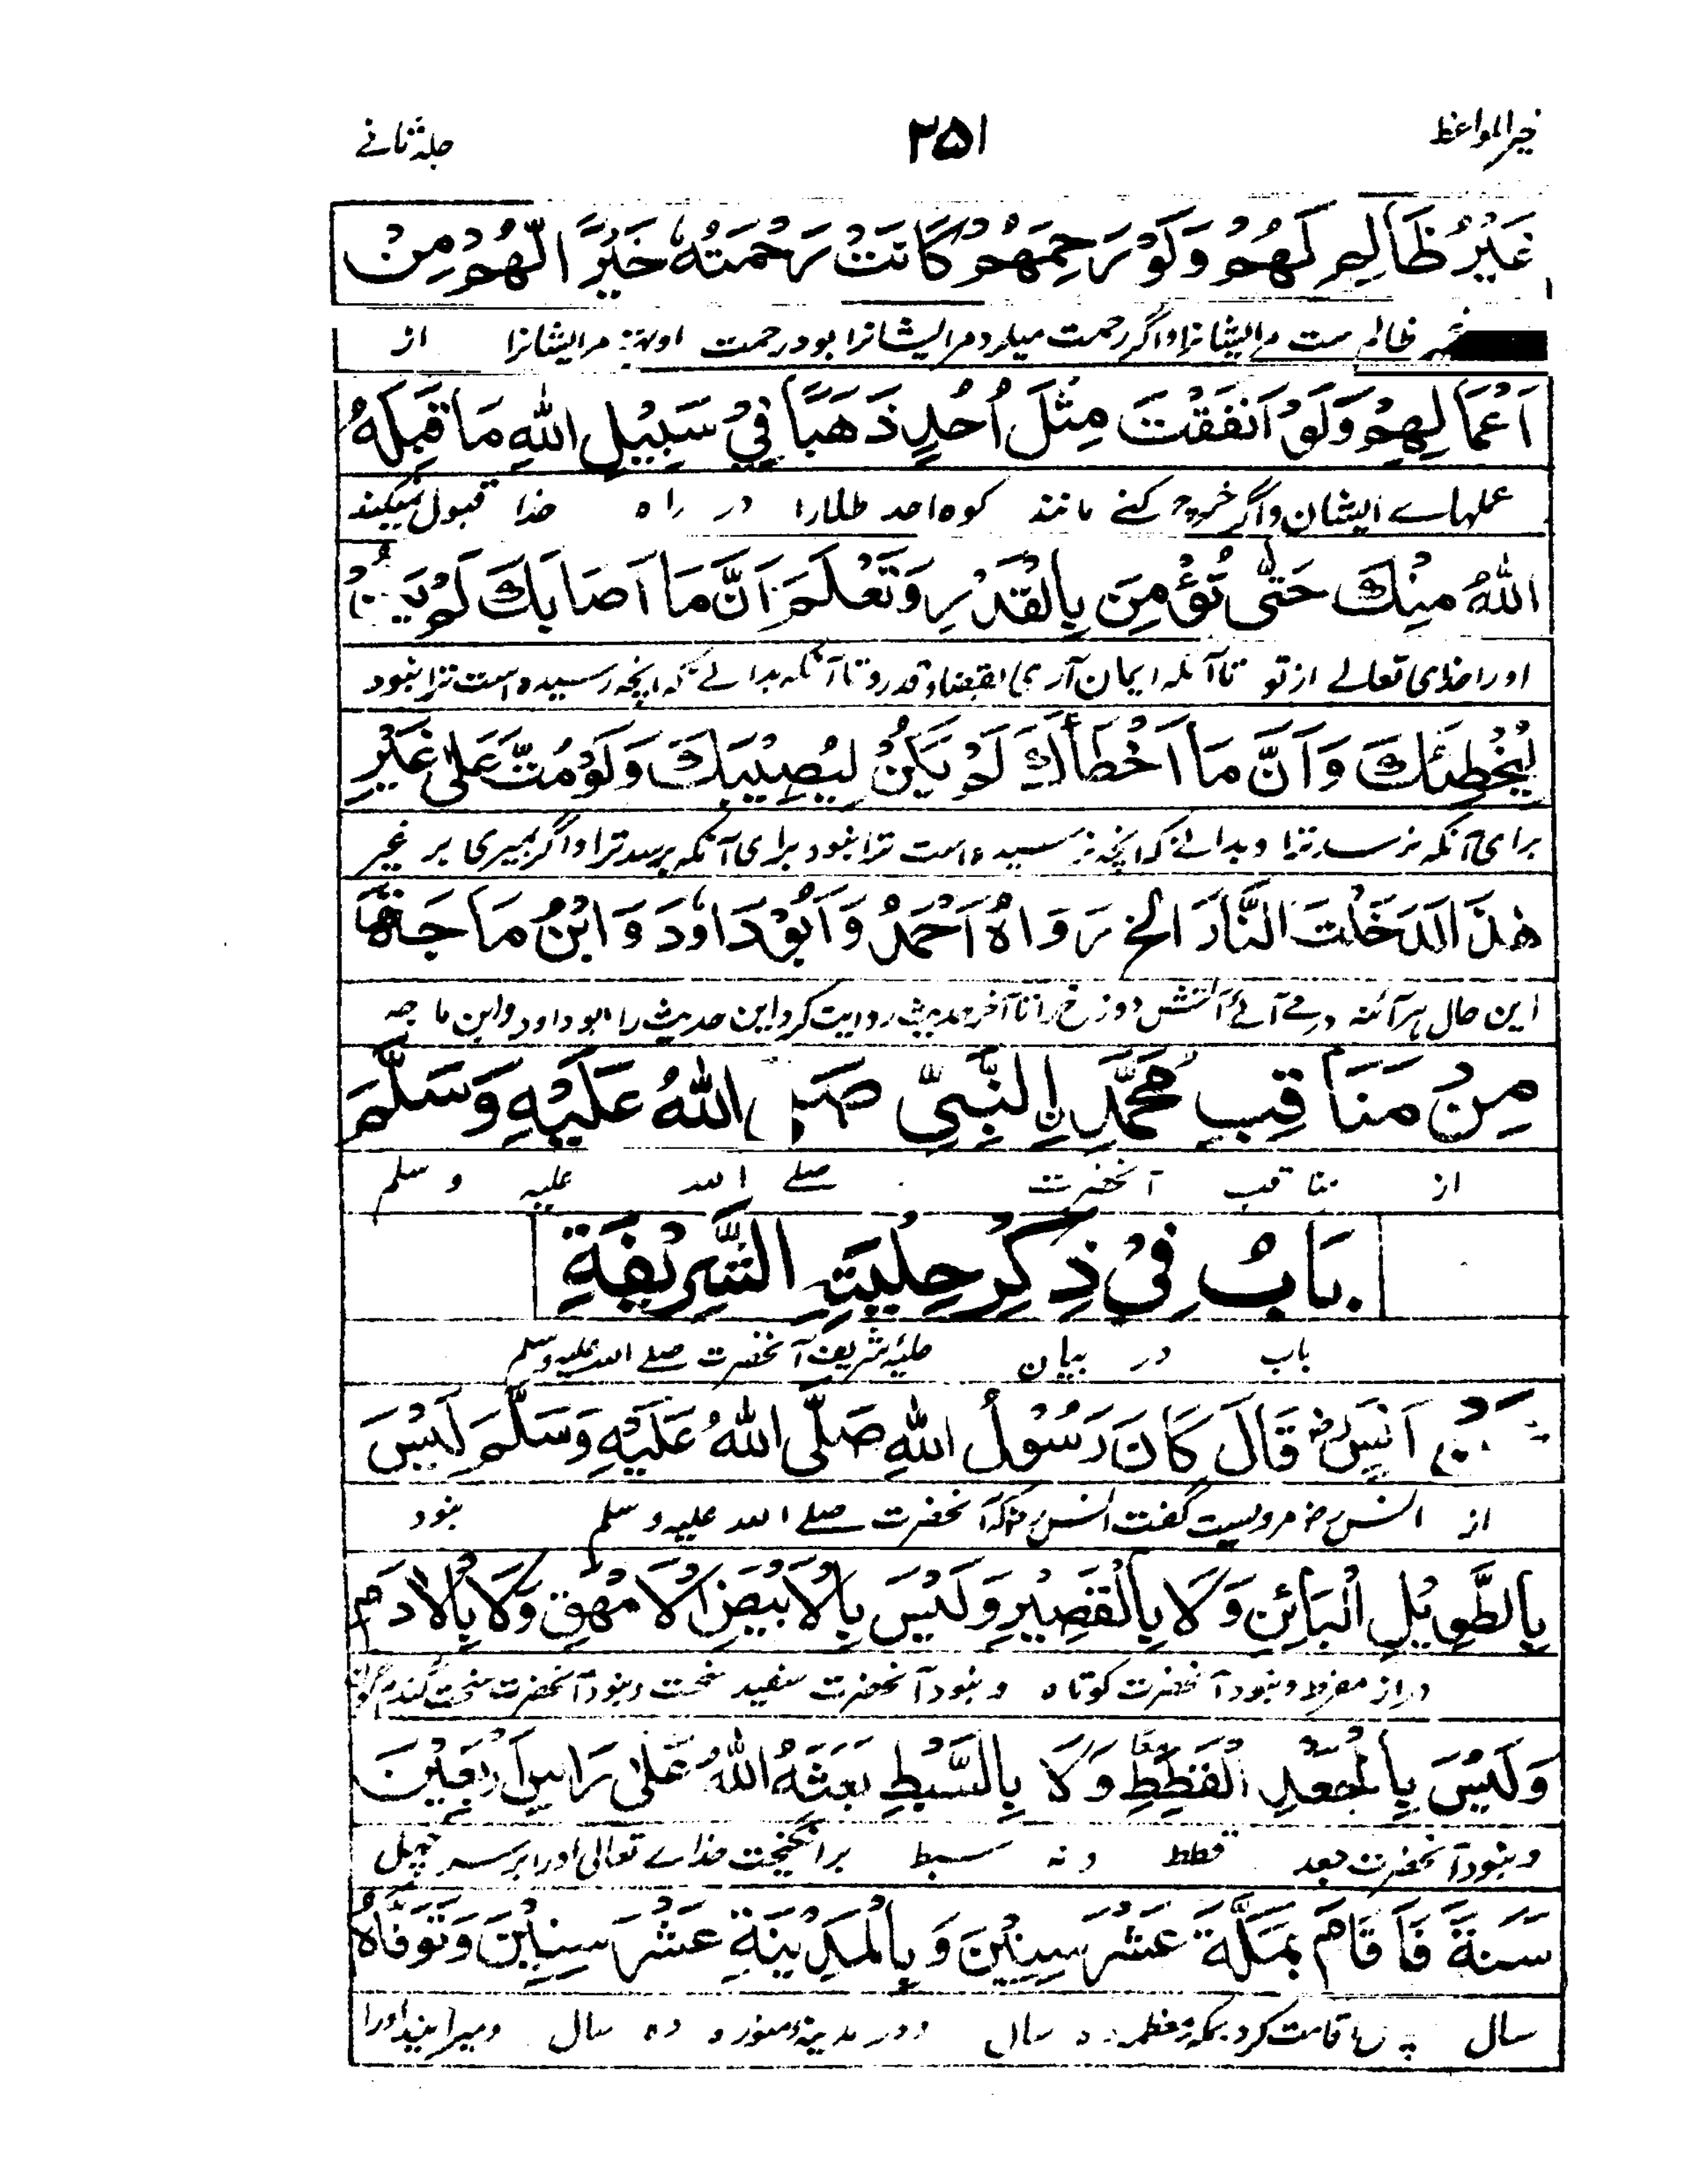 خیر المواعظ ۳۵۱ جلد ثانے
غَیْرُ ظَالِمٍ لَهُمْ وَلَوْ رَحِمَهُمْ كَانَتْ رَحْمَتُهٗ خَیْرًا لَّهُمْ مِنْ
ظالم ست مر ایشانرا و اگر رحمت میکرد مر ایشانرا بود رحمت او بہتر مر ایشانرا از
اَعْمَالِهِمْ وَلَوْ اَنْفَقْتَ مِثْلَ اُحُدٍ ذَهَبًا فِیْ سَبِیْلِ اللهِ مَا قَبِلَهُ
عملہاے ایشان و اگر خرچ کنے مانند کوہ احد طلا را در راہ خدا قبول نمیکند
اللهُ مِنْكَ حَتّٰی تُؤْمِنَ بِالْقَدْرِ وَتَعْلَمَ اَنَّ مَا اَصَابَكَ لَمْ یَكُنْ
اورا خدای تعالے از تو تا آنکہ ایمان آری بقضا و قدر و تا آنکہ بدانے کہ انچہ رسیدہ است ترا نبود
لِیُخْطِئَكَ وَاَنَّ مَا اَخْطَأَكَ لَمْ یَكُنْ لِیُصِیْبَكَ وَلَوْ مُتَّ عَلٰی غَیْرِ
برای آنکہ نرسد ترا و بدانے کہ انچہ نرسیدہ است ترا نبود برای آنکہ برسد ترا و اگر بمیری بر غیر
هٰذَا لَدَخَلْتَ النَّارَ الخ رَوَاهُ اَحْمَدُ وَاَبُوْ دَاوٗدَ وَابْنُ مَاجَةَ
این حال ہر آئنہ درمے آئے آتش دوزخ را تا آخر حدیث روایت کرد این حدیث را ابو داود و ابن ماجہ
مِنْ مَنَاقِبِ مُحَمَّدِنِ النَّبِیِّ صَلَّی اللهُ عَلَیْهِ وَسَلَّمَ
از مناقب آنحضرت صلے اللہ علیہ و سلم
بَابٌ فِیْ ذِكْرِ حِلْیَتِهِ الشَّرِیْفَةِ
باب در بیان حلیہ شریف آنحضرت صلے اللہ علیہ و سلم
عَنْ اَنَسٍ رض قَالَ كَانَ رَسُوْلُ اللهِ صَلَّی اللهُ عَلَیْهِ وَسَلَّمَ لَیْسَ
از انس رض مرویست گفت انس رض کہ آنحضرت صلے اللہ علیہ و سلم نبود
بِالطَّوِیْلِ الْبَائِنِ وَلَا بِالْقَصِیْرِ وَلَیْسَ بِالْاَبْیَضِ الْاَمْهَقِ وَلَا بِالْاٰدَمِ
دراز مفرط و نبود آنحضرت کوتاہ و نبود آنحضرت سفید سخت و نبود آنحضرت سخت گندم گون
وَلَیْسَ بِالْجَعْدِ الْقَطَطِ وَلَا بِالسَّبْطِ بَعَثَهُ اللهُ عَلٰی رَاْسِ اَرْبَعِیْنَ
و نبود آنحضرت جعد قطط و نہ سبط برانگیخت خداے تعالی اورا بر سر چہل
سَنَةً فَاَقَامَ بِمَكَّةَ عَشْرَ سِنِیْنَ وَبِالْمَدِیْنَةِ عَشْرَ سِنِیْنَ وَتَوَفَّاهُ
سال پس اقامت کرد بمکہ معظمہ دہ سال و در مدینہ منورہ دہ سال و میرانید اورا